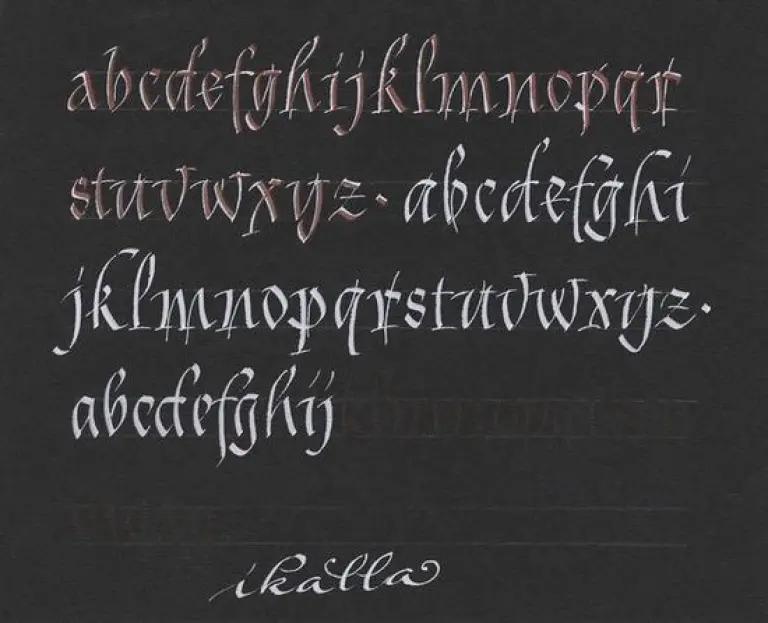 abcdefghijklmnopqr
stuvwxyz · abcdefghi
jklmnopqrstuvwxyz ·
abcdefghij
ikalla